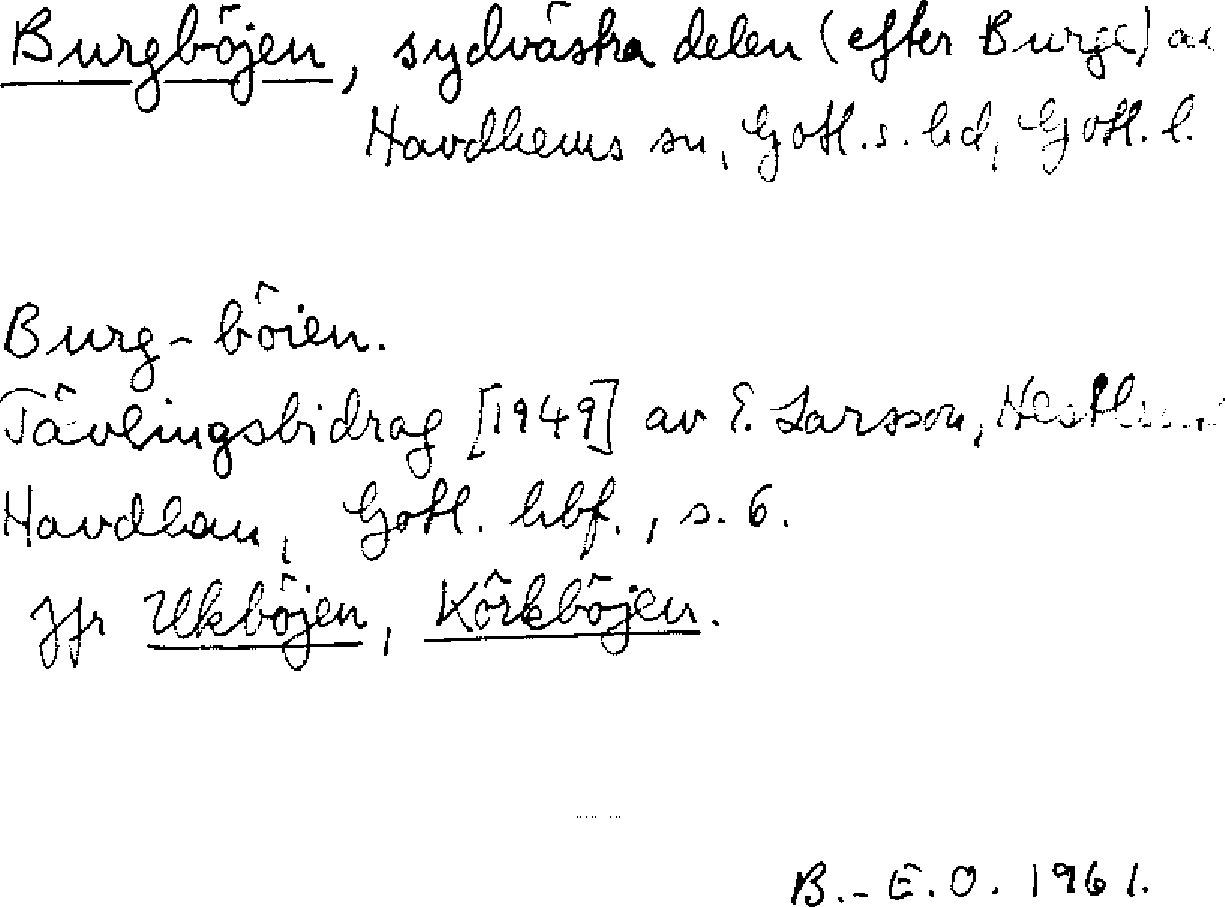 Burgböjen, sydvästra delen (efter Burge) av
Havdhems sn, Gotl. s. hd, Gotl. l.
Burg-böien.
Tävlingsbidrag [1949] av E. Larsson,
Havdhem, Gotl. hbf., s. 6.
Jfr Ukböjen, Körkböjen.
B.-E.O. 1961.